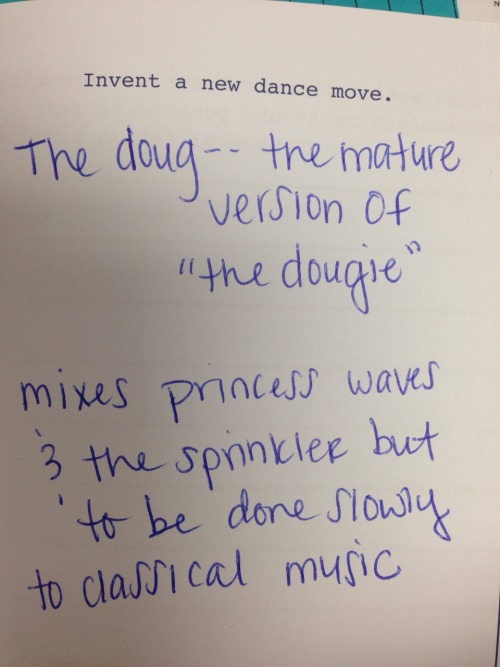 Invent a new dance move.
The doug-- the mature
version of
"the dougie"
mixes princess waves
& the sprinkler but
to be done slowly
to classical music